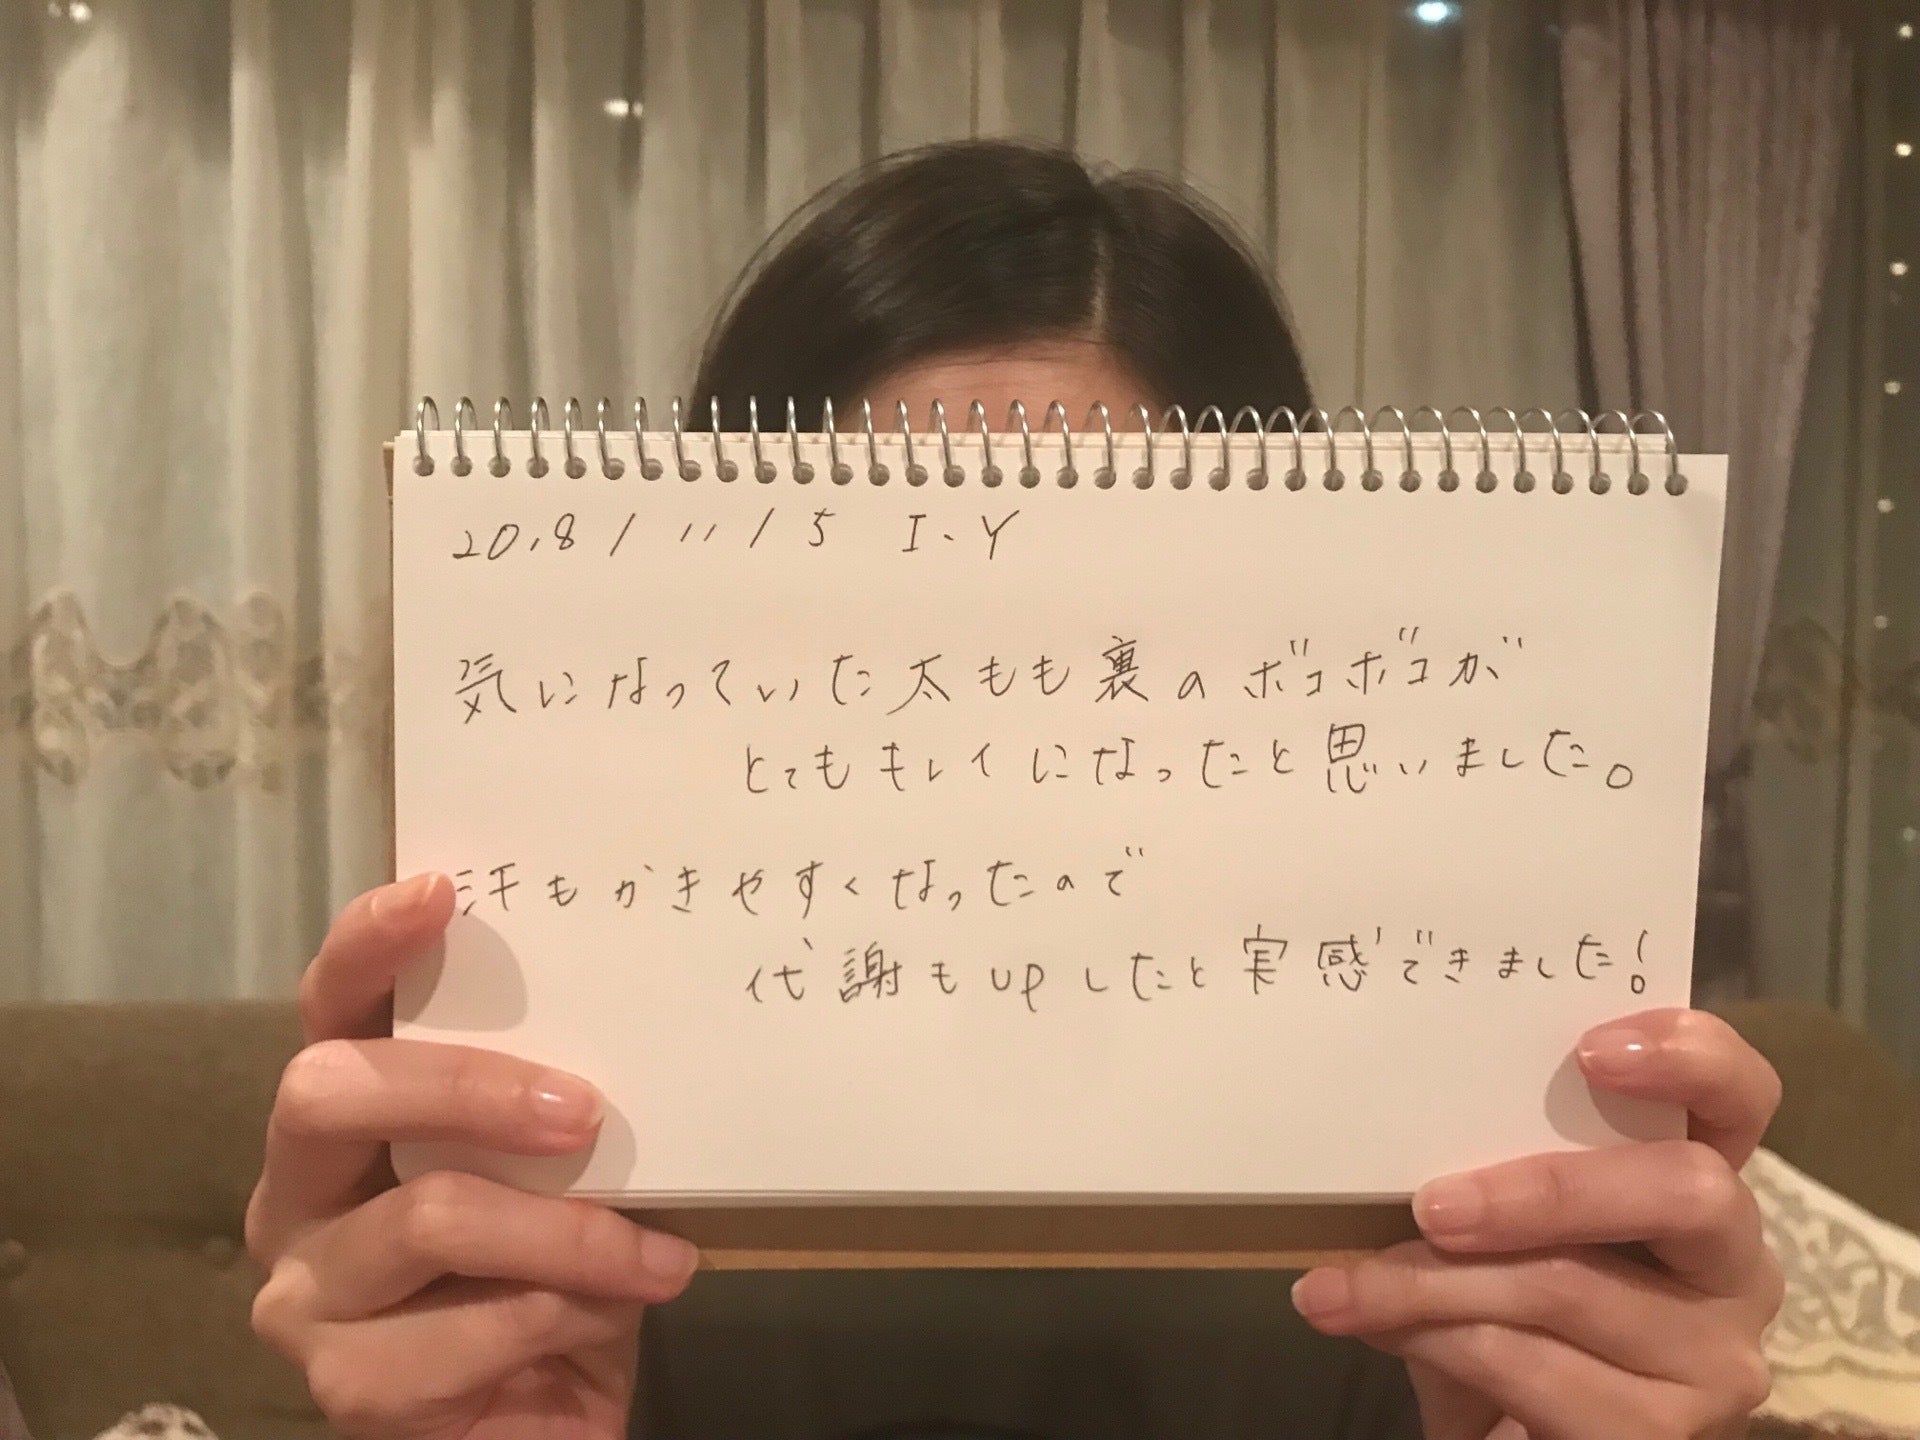 2018/11/5 I.Y
気になっていた太もも裏のボコボコが
とてもキレイになったと思いました。
汗もかきやすくなったので
代謝もupしたと実感できました!